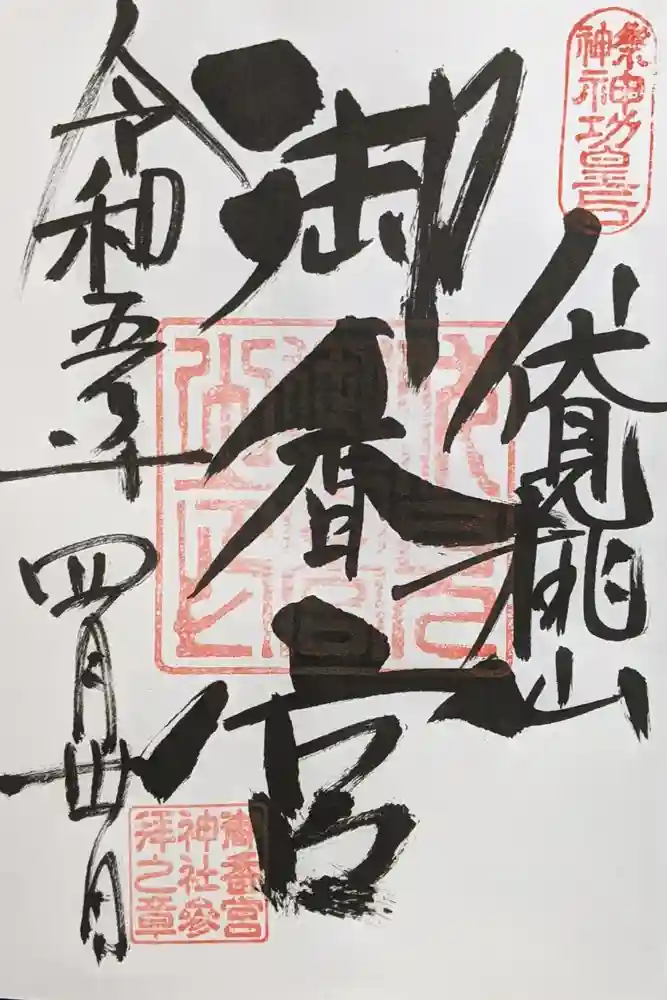 祭神
神功皇后
伏見桃山
御香宮
令和五年四月丗日
御香宮
神社參
拝之章